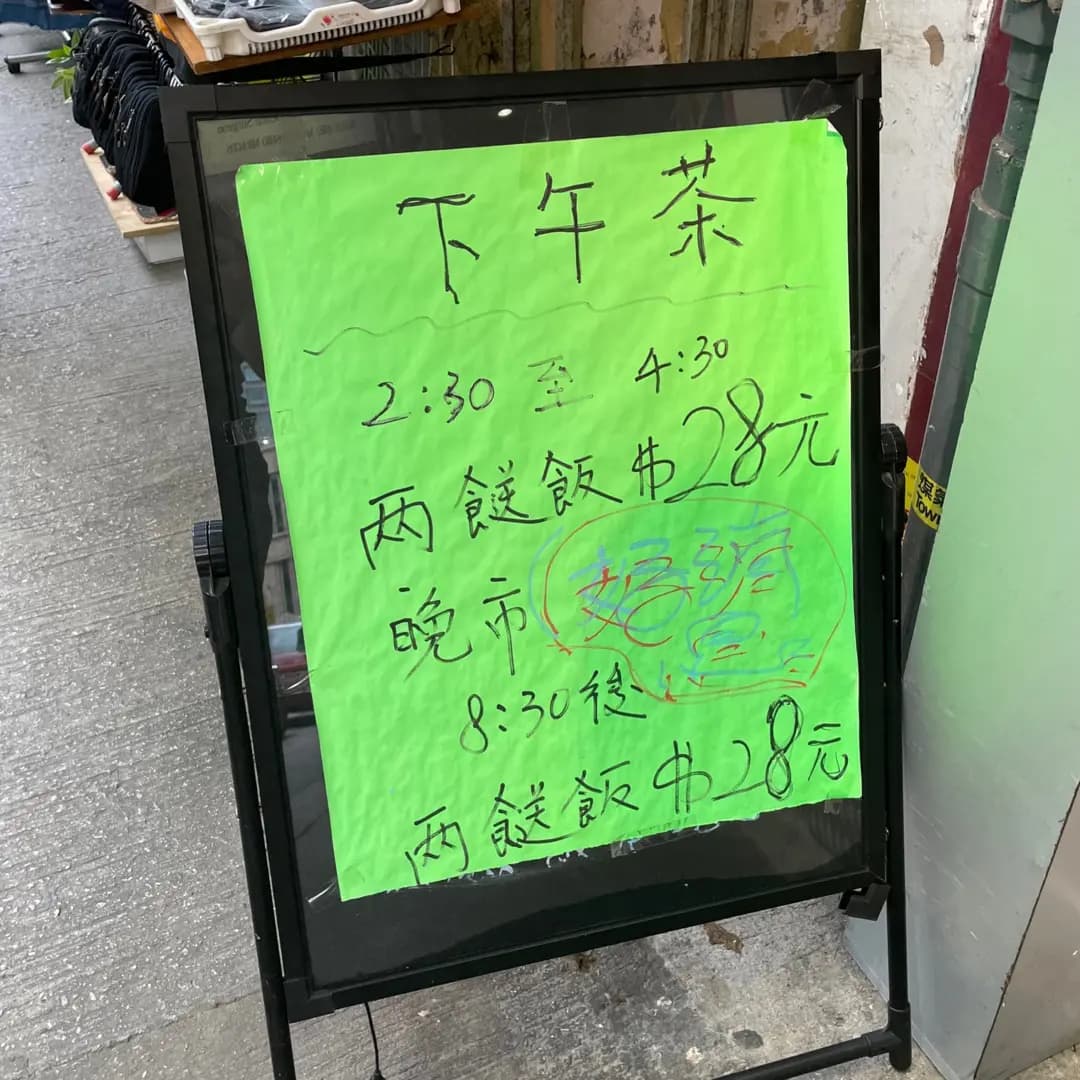 下午茶
2:30 至 4:30
两餸飯 $28元
晚市
8:30後
两餸飯 $28元